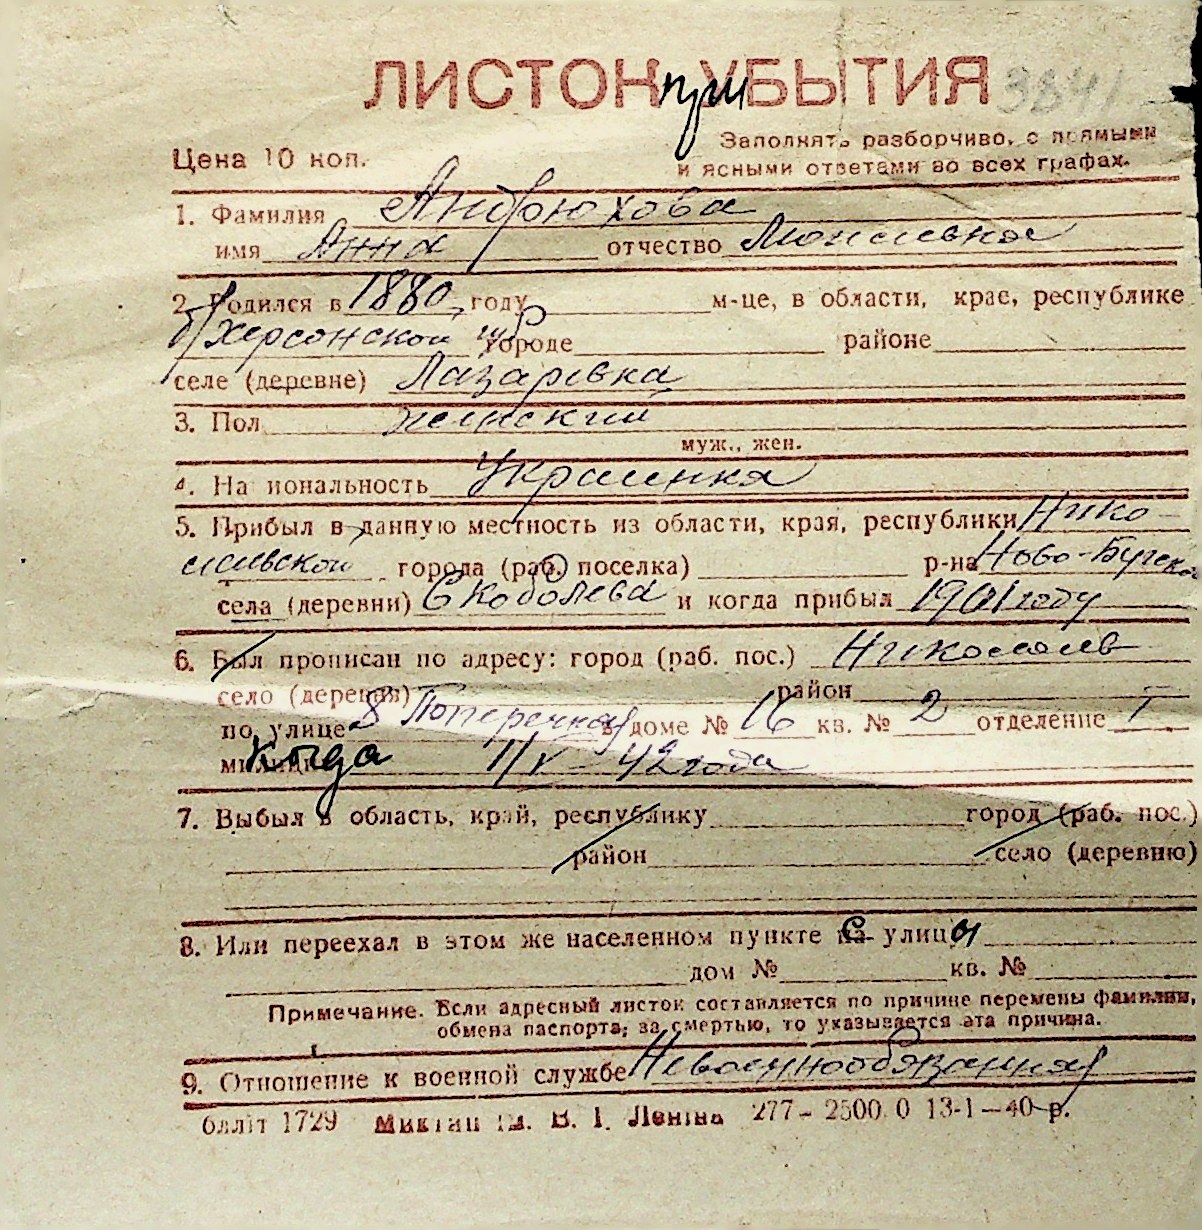 ЛИСТОК при УБЫТИЯ 3841
Цена 10 коп.
Заполнять разборчиво, с прямыми
и ясными ответами во всех графах.
1. Фамилия Андрюхова
имя Анна отчество Моисеевна
2. Родился в 1880 году м-це, в области, крае, республике
б/Херсонской губ городе районе
селе (деревне) Лазаревка
3. Пол женский
муж., жен.
4. Национальность Украинка
5. Прибыл в данную местность из области, края, республики Нико-
лаевской города (раб. поселка) р-на Ново-Бугска
села (деревни) Скоболева и когда прибыл году
6. Был прописан по адресу: город (раб. пос.) Николаев
село (деревня) район
по улице 8 Поперечная в доме № 16 кв. № 2 отделение I
милиции Когда 1/V - 42 года
7. Выбыл в область, край, республику город (раб. пос.)
район село (деревню)
8. Или переехал в этом же населенном пункте с на улицы
дом № кв. №
Примечание. Если адресный листок составляется по причине перемены фамилии,
обмена паспорта, за смертью, то указывается эта причина.
9. Отношение к военной службе Невоеннообязанная
бліт 1729 ім. В. І. Леніна 277–2500.0 13-1–40 р.